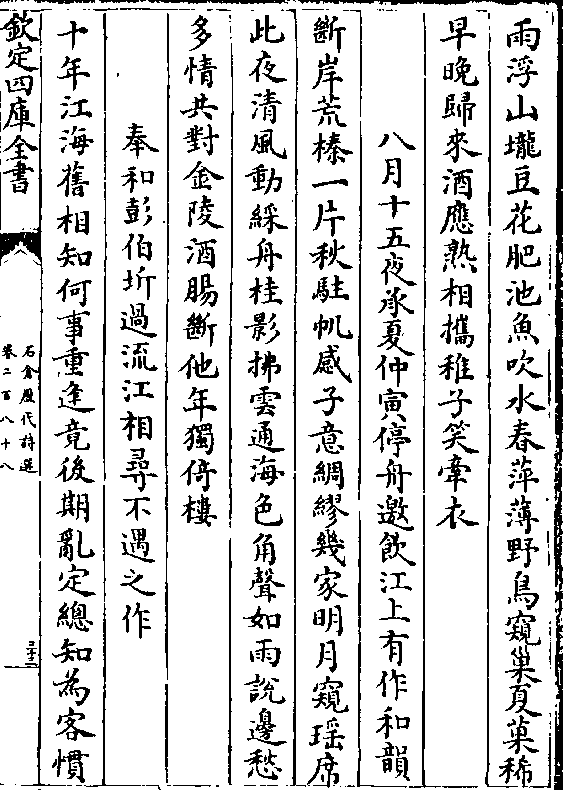 雨浮山壠豆花肥池魚吹水春萍薄野鳥窺巢夏菓稀
早晚歸來酒應熟相攜稚子笑牽衣
八月十五夜承夏仲寅停舟邀飲江上有作和韻
斷岸荒榛一片秋駐帆感子意綢繆幾家明月窺瑶席
此夜清風動綵舟桂影拂雲通海色角聲如雨說邊愁
多情共對金陵酒腸斷他年獨倚樓
奉和彭伯圻過流江相尋不遇之作
十年江海舊相知何事重逢竟後期亂定總知為客慣
欽定四庫全書
石倉歷代詩選
卷二百八十八